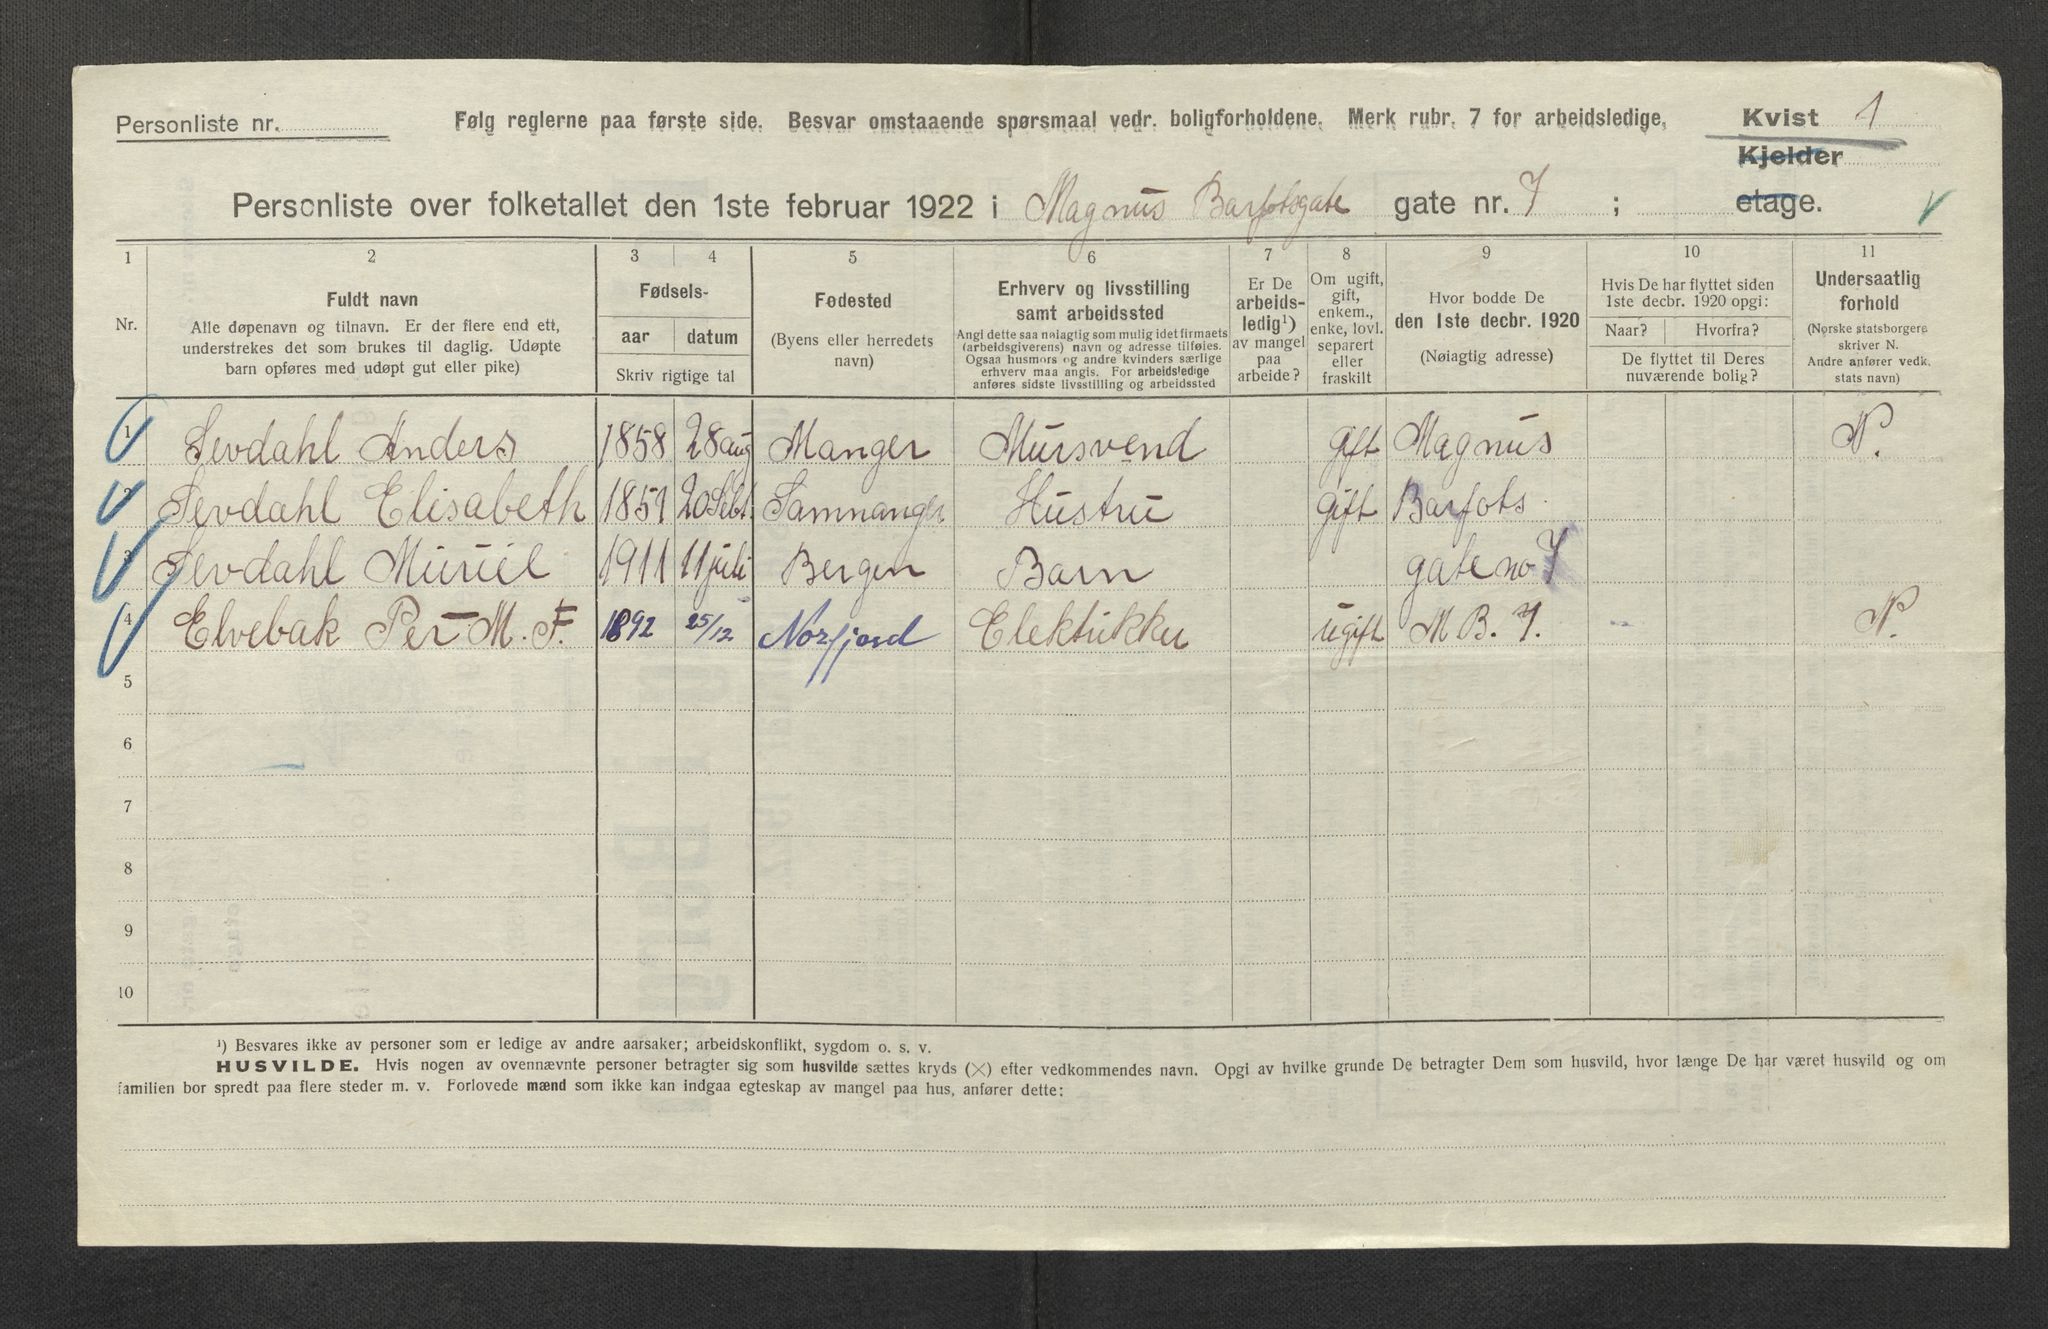 Personliste nr.
Følg reglerne paa første side. Besvar omstaaende spørsmaal vedr. boligforholdene. Merk rubr. 7 for arbeidsledige.
Kvist 1
Kjelder
Personliste over folketallet den 1ste februar 1922 i Magnus Barfotsgate gate nr. 7 ; etage.
1 2 3 4 5 6 7 8 9 10 11
Nr.
Fuldt navn
Alle døpenavn og tilnavn. Er der flere end ett,
understrekes det som brukes til daglig. Udøpte
barn opføres med udøpt gut eller pike)
Fødsels-
aar datum
Skriv rigtige tal
Fødested
(Byens eller herredets
navn)
Erhverv og livsstilling
samt arbeidssted
Angi dette saa nøiagtig som mulig idet firmaets
(arbeidsgiverens) navn og adresse tilføies.
Ogsaa husmors og andre kvinders særlige
erhverv maa angis. For arbeidsledige
anføres sidste livsstilling og arbeidssted
Er De
arbeids-
ledig¹)
av mangel
paa
arbeide?
Om ugift,
gift,
enkem.,
enke, lovl.
separert
eller
fraskilt
Hvor bodde De
den 1ste decbr. 1920
(Nøiagtig adresse)
Hvis De har flyttet siden
1ste decbr. 1920 opgi:
Naar? Hvorfra?
De flyttet til Deres
nuværende bolig?
Undersaatlig
forhold
(Norske statsborgere
skriver N.
Andre anfører vedk.
stats navn)
1 Sevdahl Anders 1858 28 aug Manger Mursvend gift Magnus N.
2 Sevdahl Elisabeth 1851 20 Sebt. Samnanger Hustru gift Barfots
3 Sevdahl Muriel 1911 11 juli Bergen Barn gate no 7
4 Elvebak Per M. F. 1892 25/12 Norfjord Elektrikker ugift M B. 7. N.
5
6
7
8
9
10
¹) Besvares ikke av personer som er ledige av andre aarsaker; arbeidskonflikt, sygdom o. s. v.
HUSVILDE. Hvis nogen av ovennævnte personer betragter sig som husvilde sættes kryds (×) efter vedkommendes navn. Opgi av hvilke grunde De betragter Dem som husvild, hvor længe De har været husvild og om
familien bor spredt paa flere steder m. v. Forlovede mænd som ikke kan indgaa egteskap av mangel paa hus, anfører dette: